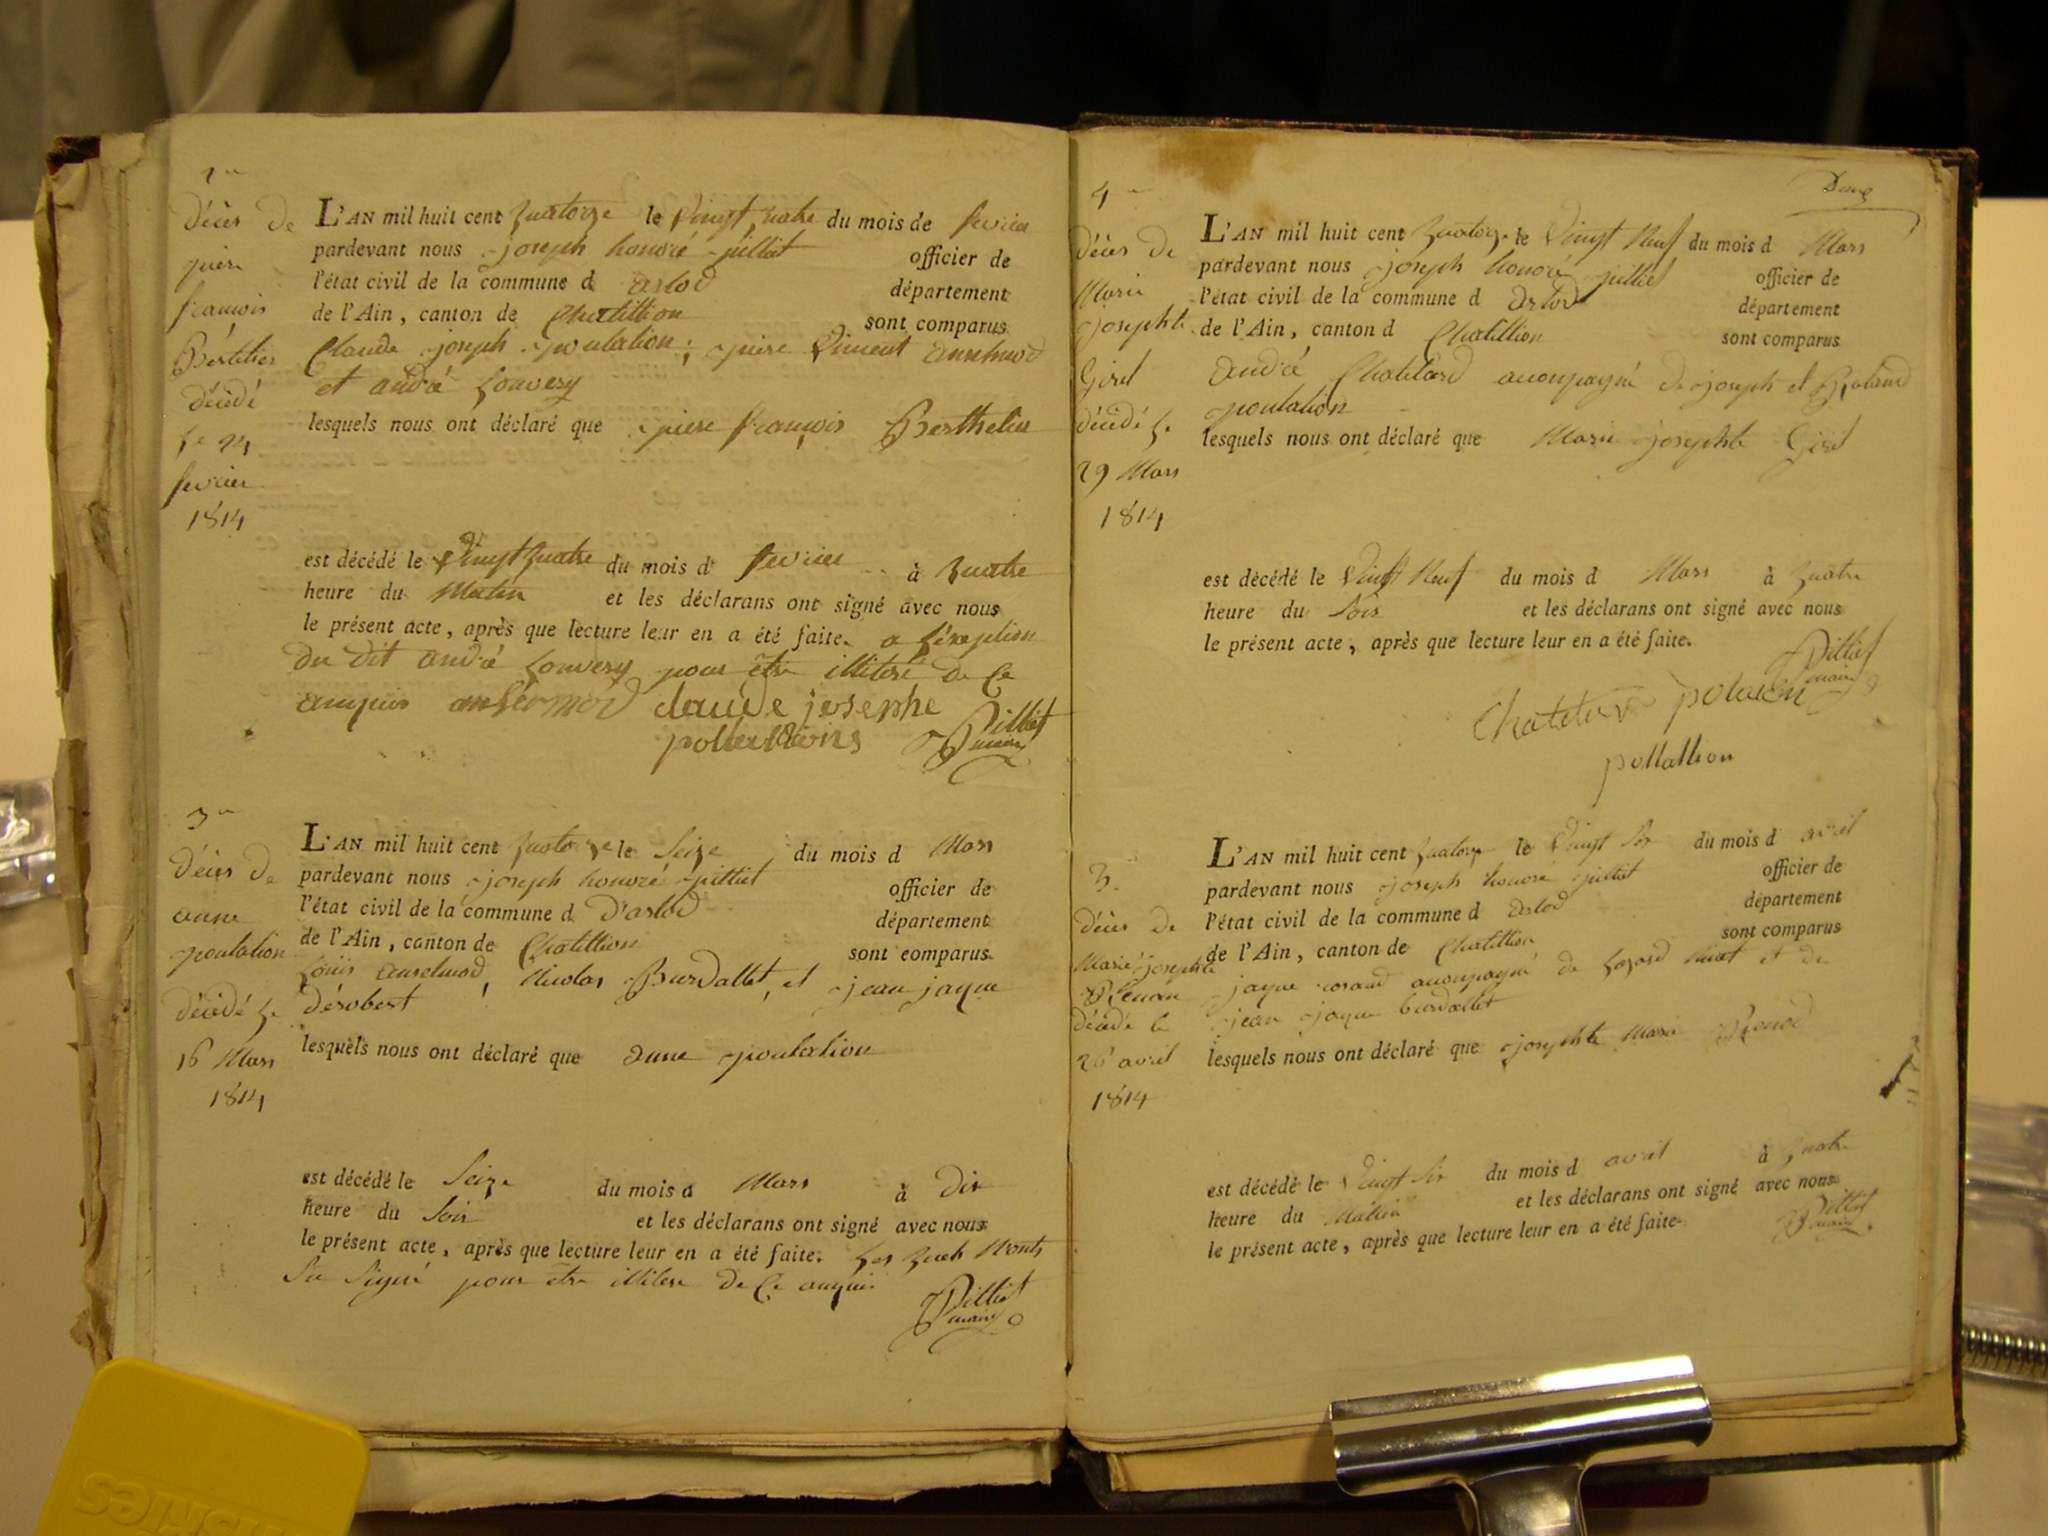 décès de
pierre
francois
Berthelier
décédé
le 24
fevrier
1814
L'AN mil huit cent quatorze le vingt quatre du mois de fevrier
pardevant nous joseph honoré pilliet officier de
l'état civil de la commune d arlod département
de l'Ain, canton de Chatillion sont comparus
Claude joseph poulation, piere Vincent anselmod
et andré Louvery
lesquels nous ont déclaré que piere francois Berthelier
est décédé le vingt quatre du mois d' fevrier à quatre
heure du Matin et les déclarans ont signé avec nous
le présent acte, après que lecture leur en a été faite. a l'éxeption
du dit andré Louvery pour être illiteré de ce
anquis ansermod claude josephe
Pilliet
maire
3
décès de
anne
poulation
décédé le
16 Mars
1814
L'AN mil huit cent quatorze le Seize du mois d Mars
pardevant nous joseph honoré pilliet officier de
l'état civil de la commune d D'arlod département
de l'Ain, canton de Chatillion sont comparus
Louis anselmod, Nicolas Burdallet, et jean jaque
désobert
lesquels nous ont déclaré que anne poulation
est décédé le Seize du mois d Mars à dix
heure du Soir et les déclarans ont signé avec nous
le présent acte, après que lecture leur en a été faite. Les quels Nonts
Su Signé pour être illitere de ce anquis
Pilliet
maire
4
décès de
Marie
josephte
Girel
décédé le
29 Mars
1814
L'AN mil huit cent quatorze le Vingt Neuf du mois d Mars
pardevant nous joseph honoré pilliet officier de
l'état civil de la commune d arlod département
de l'Ain, canton d Chatillion sont comparus
André Chatelard acompagné de joseph et Roland
poulation
lesquels nous ont déclaré que Marie josephte Girel
est décédé le Vingt Neuf du mois d Mars à quatre
heure du Soir et les déclarans ont signé avec nous
le présent acte, après que lecture leur en a été faite.
Pilliet
maire
pollation
décès de
Marie josephte
Renau
décédé le
26 avril
1814
L'AN mil huit cent quatorze le Vingt Six du mois d avril
pardevant nous joseph honoré pilliet officier de
l'état civil de la commune d arlod département
de l'Ain, canton de Chatillion sont comparus
jaque acompagné de et de
jean jaque burdallet
lesquels nous ont déclaré que josephte Marie Renod
est décédé le Vingt Six du mois d avril à quatre
heure du Matin et les déclarans ont signé avec nous
le présent acte, après que lecture leur en a été faite.
Pilliet
maire